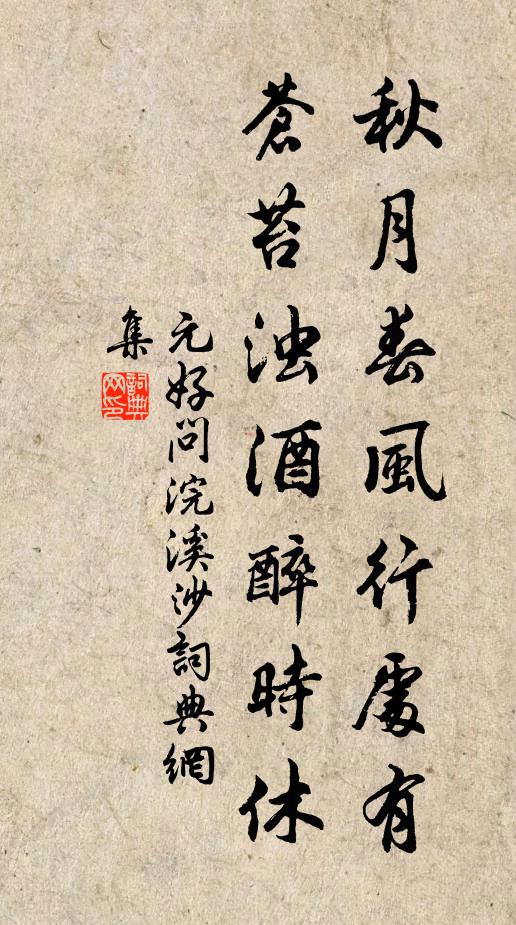 秋月春風行處有
蒼苔浊酒醉時休
元好问浣溪沙詞典網
集
詞典網印